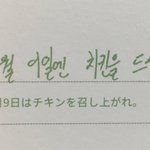 월 이일엔 치킨을 드
月9日はチキンを召し上がれ。